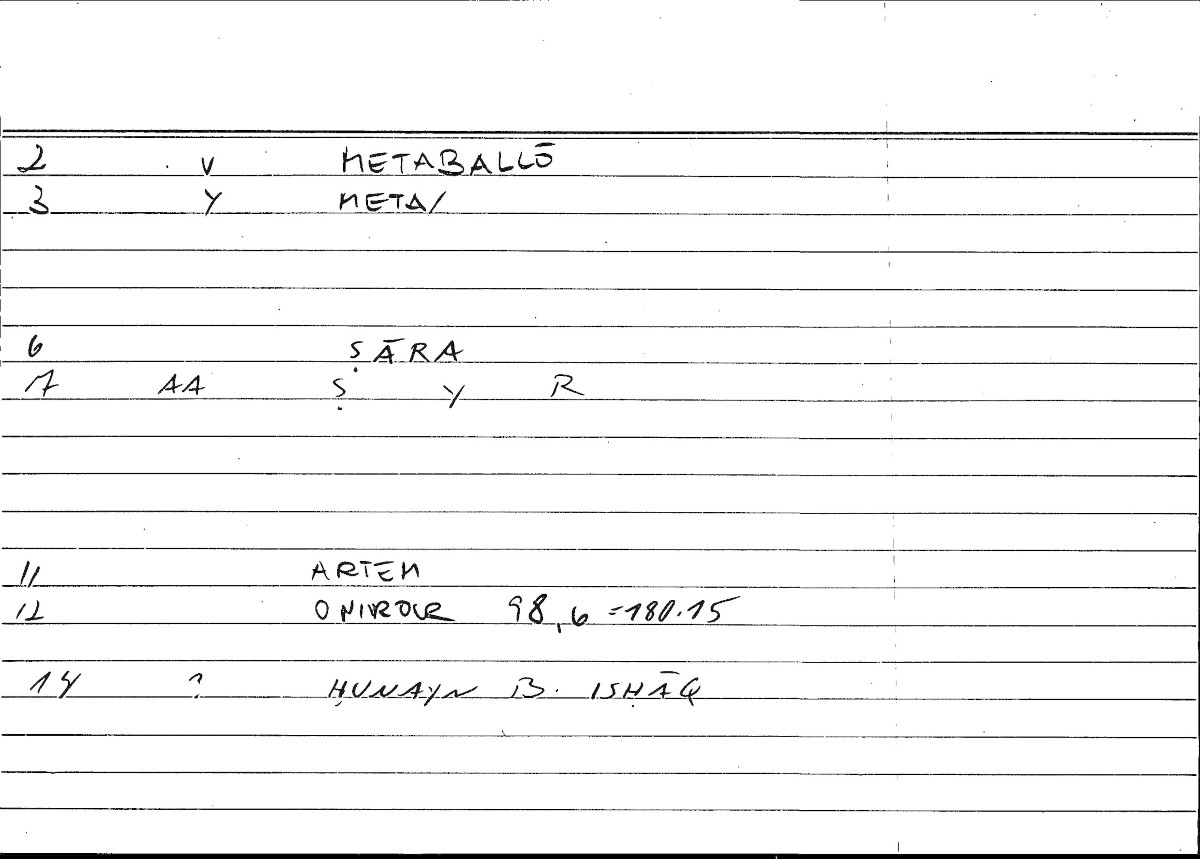 2 V METABALLŌ
3 Y META/
6 ṢĀRA
7 AA Ṣ Y R
11 ARTEM
12 ONIROCR 98,6 =180.15
14 ? ḤUNAYN B. ISḤĀQ